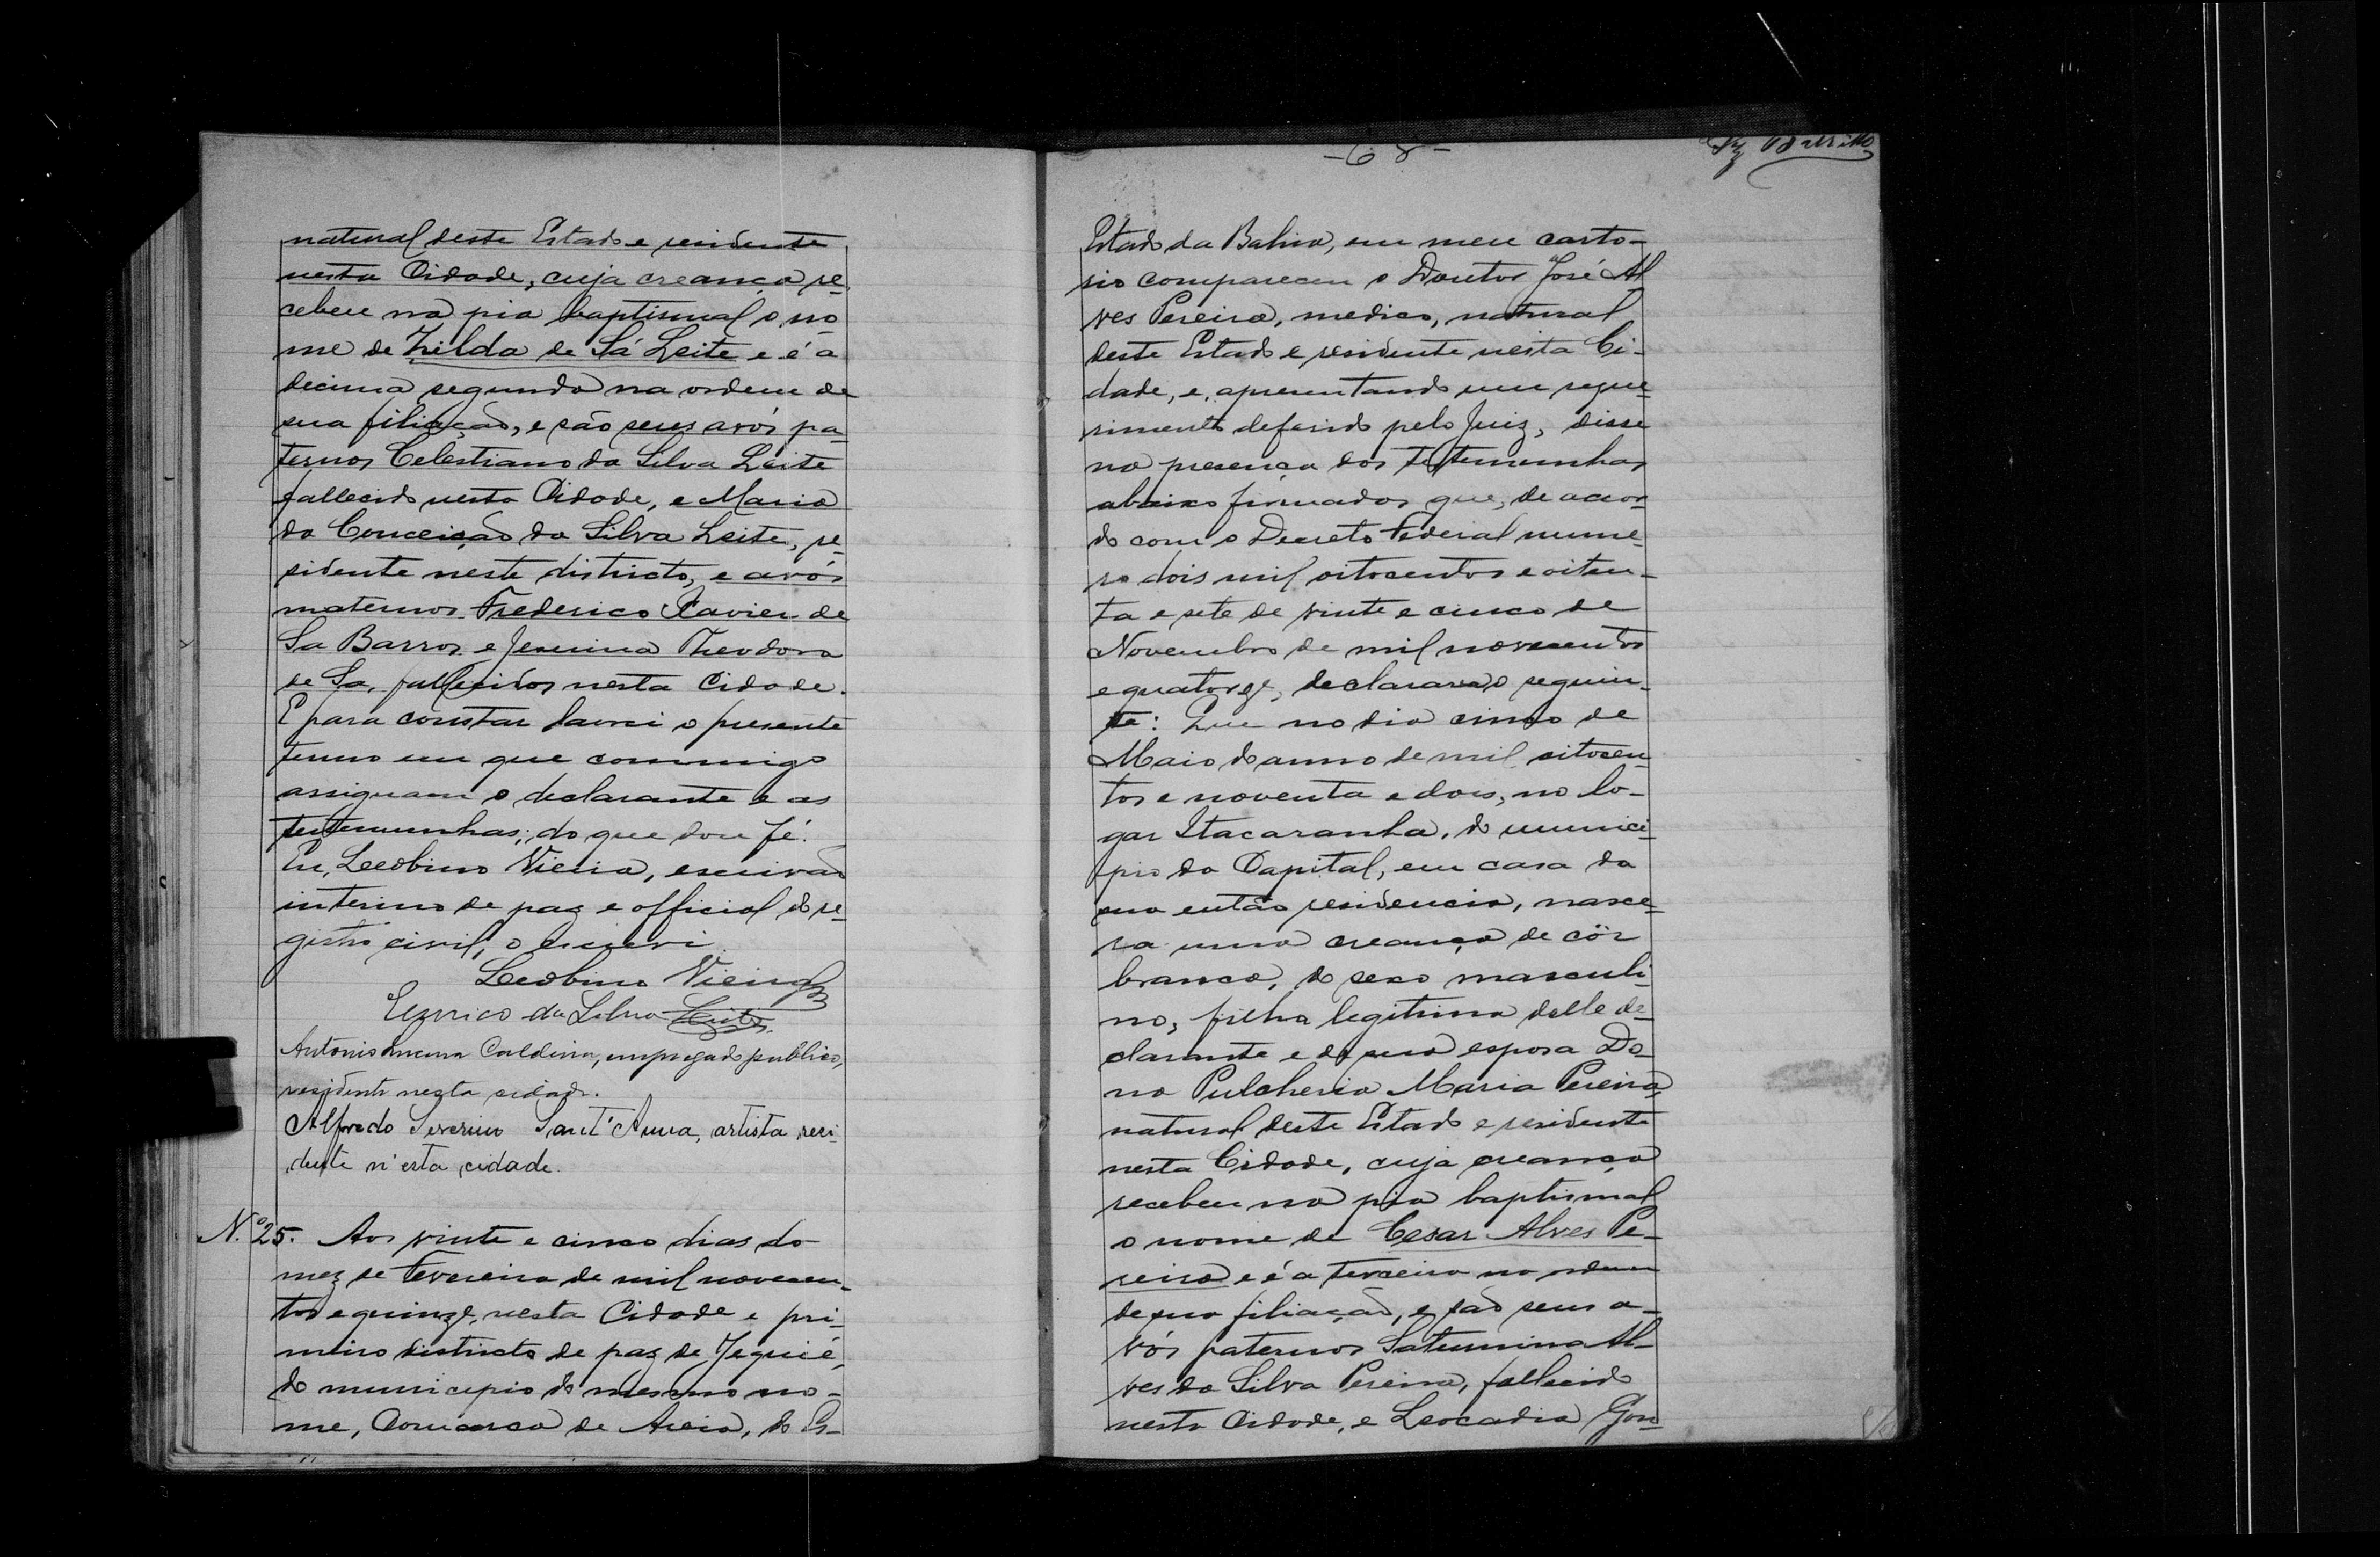 natural deste Estado e residente
nesta Cidade, cuja creança re-
cebeu na pia baptismal o no-
me de Zilda de Sá Leite e é a
decima segunda na ordem de
sua filiação, e são seus avós pa-
ternos Celestiano da Silva Leite
fallecido nesta Cidade, e Maria
da Conceição da Silva Leite, re-
sidente neste districto, e avós
maternos Frederico Xavier de
Sa Barros e Jesuina Theodora
de Sa, fallecidos nesta Cidade.
E para constar lavrei o presente
termo em que commigo
assignam o declarante e as
testemunhas; do que dou fé.
Eu, Leobino Vieira, escrivão
interino de paz e official do re-
gistro civil, o escrevi
Leobino Vieira
da Silva Leite
Antonio Caldeira, empregado publico,
residente nesta cidade.
Alfredo Severino Sant'Anna, artista resi-
dente n'esta cidade.
N.º 25. Aos vinte e cinco dias do
mez de Fevereiro de mil novecen-
tos e quinze, nesta Cidade e pri-
meiro districto de paz de Jequié,
do municipio do mesmo no-
me, Comarca de Areia, do Es-
-68-
Estado da Bahia, em meu carto-
rio compareceu o Doutor José Al
ves Pereira, medico, natural
deste Estado e residente nesta Ci-
dade, e, apresentando um reque-
rimento deferido pelo Juiz, disse
na presença das testemunhas
abaixo firmadas que, de accor-
do com o Decreto Federal nume-
ro dois mil oitocentos e oiten-
ta e sete de vinte e cinco de
Novembro de mil novecentos
e quatorze, declarava o seguin-
te: Que no dia cinco de
Maio do anno de mil oitocen-
tos e noventa e dois, no lo-
gar Itacaranha, do munici-
pio da Capital, em casa da
sua então residencia, nasce-
ra uma creança de côr
branca, do sexo masculi-
no, filha legitima delle de-
clarante e de sua esposa Do-
na Pulcheria Maria Pereira,
natural deste Estado e residente
nesta Cidade, cuja creança
recebeu na pia baptismal
o nome de Cesar Alves Pe-
reira e é a terceira na ordem
de sua filiação, e são seus a-
vós paternos Saturnino Al-
ves da Silva Pereira, fallecido
nesta Cidade, e Leocadia Gon-